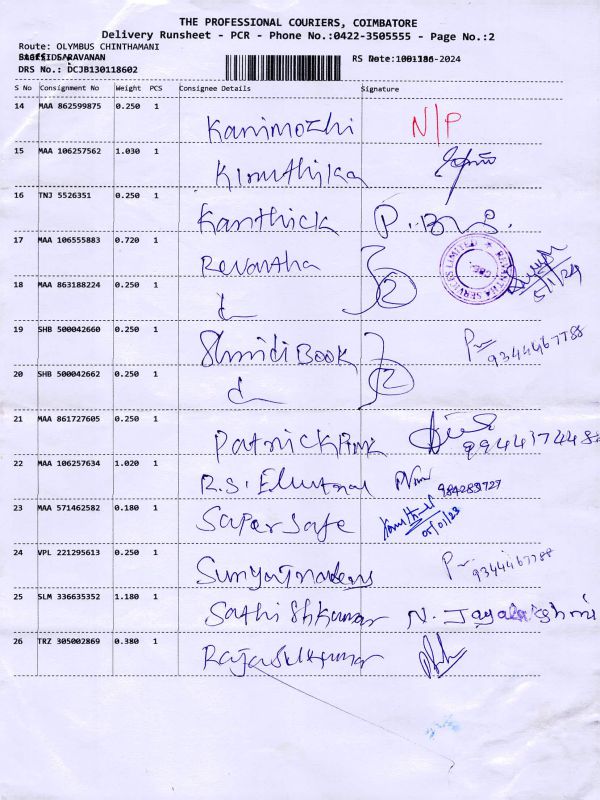 THE PROFESSIONAL COURIERS, COIMBATORE
Delivery Runsheet - PCR - Phone No.:0422-3505555 - Page No.:2
Route: OLYMBUS CHINTHAMANI
SARAVANAN
DRS No.: DCJB130118602
S No Consignment No Weight PCS Consignee Details Signature
14 MAA 862599875 0.250 1 Kanimozhi N/P
15 MAA 106257562 1.030 1
16 TNJ 5526351 0.250 1 Karthick
17 MAA 106555883 0.720 1 Revantha 5/1/24
18 MAA 863188224 0.250 1 2
19 SHB 500042660 0.250 1 Book 9344467788
20 SHB 500042662 0.250 1 2
21 MAA 861727605 0.250 1 Patrick
22 MAA 106257634 1.020 1 R.S.
23 MAA 571462582 0.180 1 Saper Safe 05/01/23
24 VPL 221295613 0.250 1 9344467788
25 SLM 336635352 1.180 1 Sathishkumar
26 TRZ 305002869 0.380 1